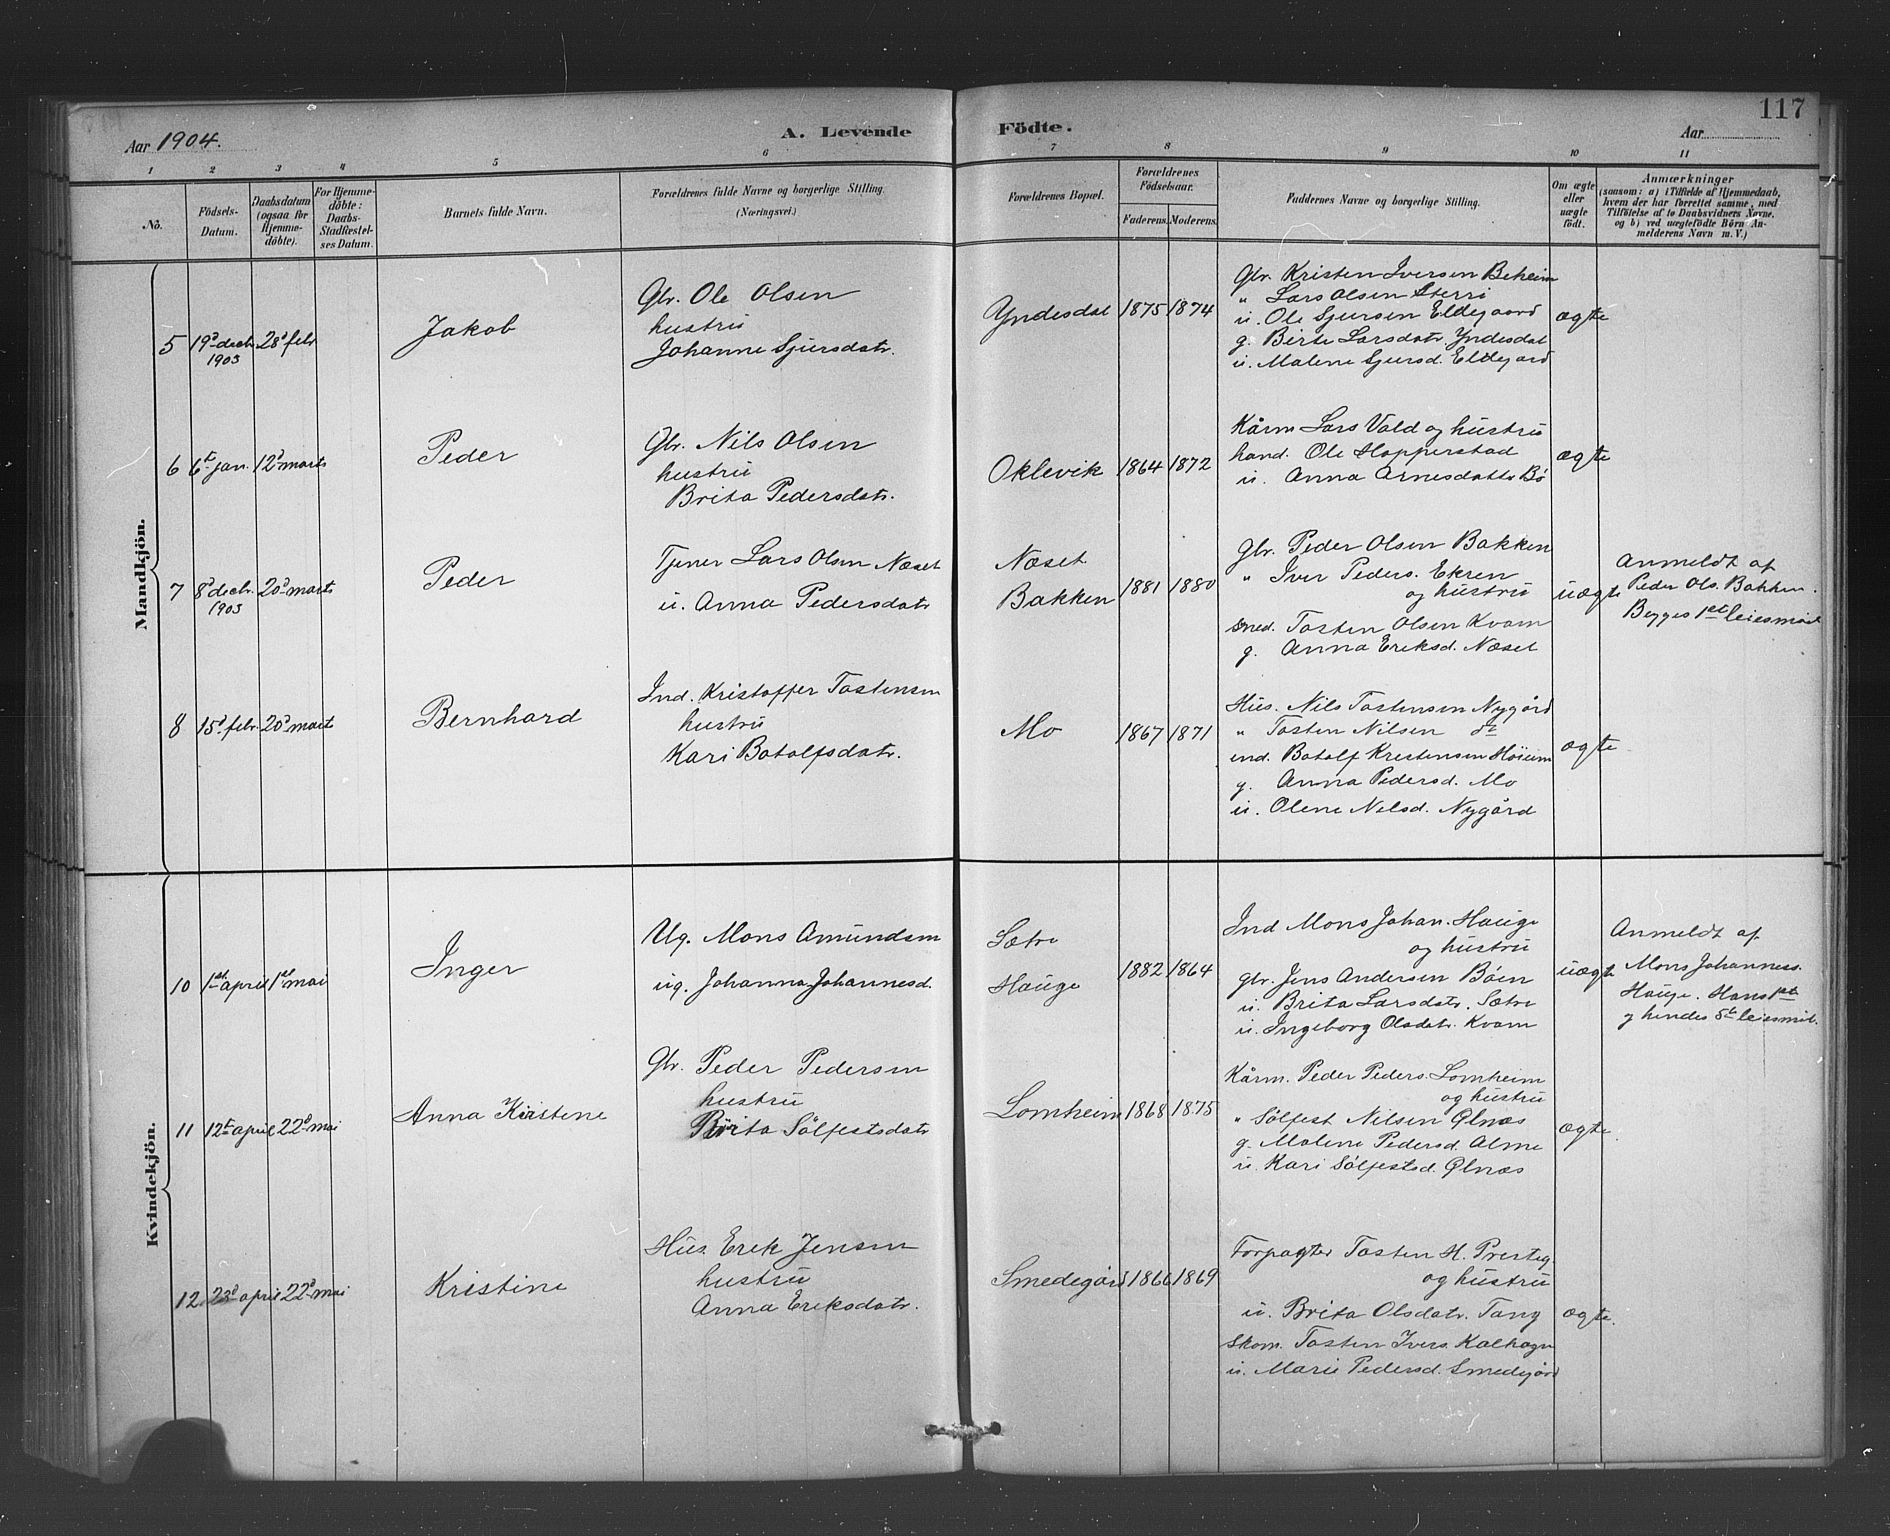 Aar 1904.
A. Levende Födte.
Aar
117
1 2 3 4 5 6 7 8 9 10 11
No.
Födsels-Datum.
Daabsdatum (ogsaa for Hjemme-döbte).
For Hjemme-döbte: Daabs-Stadfæstel-ses Datum.
Barnets fulde Navn.
Forældrenes fulde Navne og borgerlige Stilling. (Næringsvei.)
Forældrenes Bopæl.
Forældrenes Födselsaar.
Faderens. Moderens.
Faddernes Navne og borgerlige Stilling.
Om ægte eller uægte födt.
Anmærkninger
(saasom: a) i Tilfælde af Hjemmedaab,
hvem der har forrettet samme, med
Tilföielse af to Daabsvidners Navne,
og b) ved uægtefödte Börn An-
melderens Navn m. V.)
Mandkjön.
5 19d decbr. 1903 28d febr Jakob
Gbr. Ole Olsen
hustru
Johanne Sjursdatr.
Yndesdal 1875 1874
Gbr. Kristen Iversen Beheim
" Lars Olsen Sterri
u. Ole Sjursen Eldegaard
g. Birte Larsdatr. Yndesdal
u. Malene Sjursd. Eldegard
ægte
6 6t jan. 12d marts Peder
Gbr. Nils Olsen
hustru
Brita Pedersdatr.
Oklevik 1864 1872
Kårm Lars Vold og hustru
hand. Ole Hopperstad
u. Anna Arnesdattr Bø
ægte
7 8d decbr. 1903 20d marts Peder
Tjener Lars Olsen Næset
u. Anna Pedersdatr
Næset
Bakken 1881 1880
Gbr. Peder Olsen Bakken
" Iver Peders. Ekren
og hustru
smed. Tosten Olsen Kvam
g. Anna Eriksd. Næset
uægte
Anmeldt af
Peder Ols. Bakken.
Begges 1ste leiesmaal
8 15d febr. 20d marts Bernhard
Ind. Kristoffer Tostensen
hustru
Kari Botolfsdatr.
Mo 1867 1871
Hus. Nils Tostensen Nygård
" Tosten Nilsen do
ind. Botolf Kristensen Høieim
g. Anna Pedersd. Mo
u. Olene Nilsd. Nygård
ægte
Kvindekjön.
10 1st april 1st mai Inger
Ug. Mons Amundsen
ug. Johanna Johannesd.
Sætre
Hauge 1882 1864
Ind Mons Johan. Hauge
og hustru
gbr. Jens Andersen Böen
u. Brita Larsdatr. Sætre
u. Ingeborg Olsdatr. Kvam
uægte
Anmeldt af
Mons Johanness.
Hauge. Hans 1ste
og hendes 5te leiesmål.
11 12t april 22d mai Anna Kristene
Gbr. Peder Pedersen
hustru
Brita Sölfestsdatr
Lomheim 1868 1875
Kårm. Peder Peders. Lomheim
og hustru
" Sölfest Nilsen Ølnæs
g. Malene Pedersd. Alme
u. Kari Sölfestsd. Ølnæs
ægte.
12 23d april 22d mai Kristine
Hus. Erik Jensen
hustru
Anna Eriksdatr.
Smedegård 1866 1869
Forpagter Tosten H. Presteg
og hustru
u. Brita Olsdatr. Tang
Skom. Tosten Ivers. Kalhagn
u. Marie Pedersd. Smedegård
ægte.